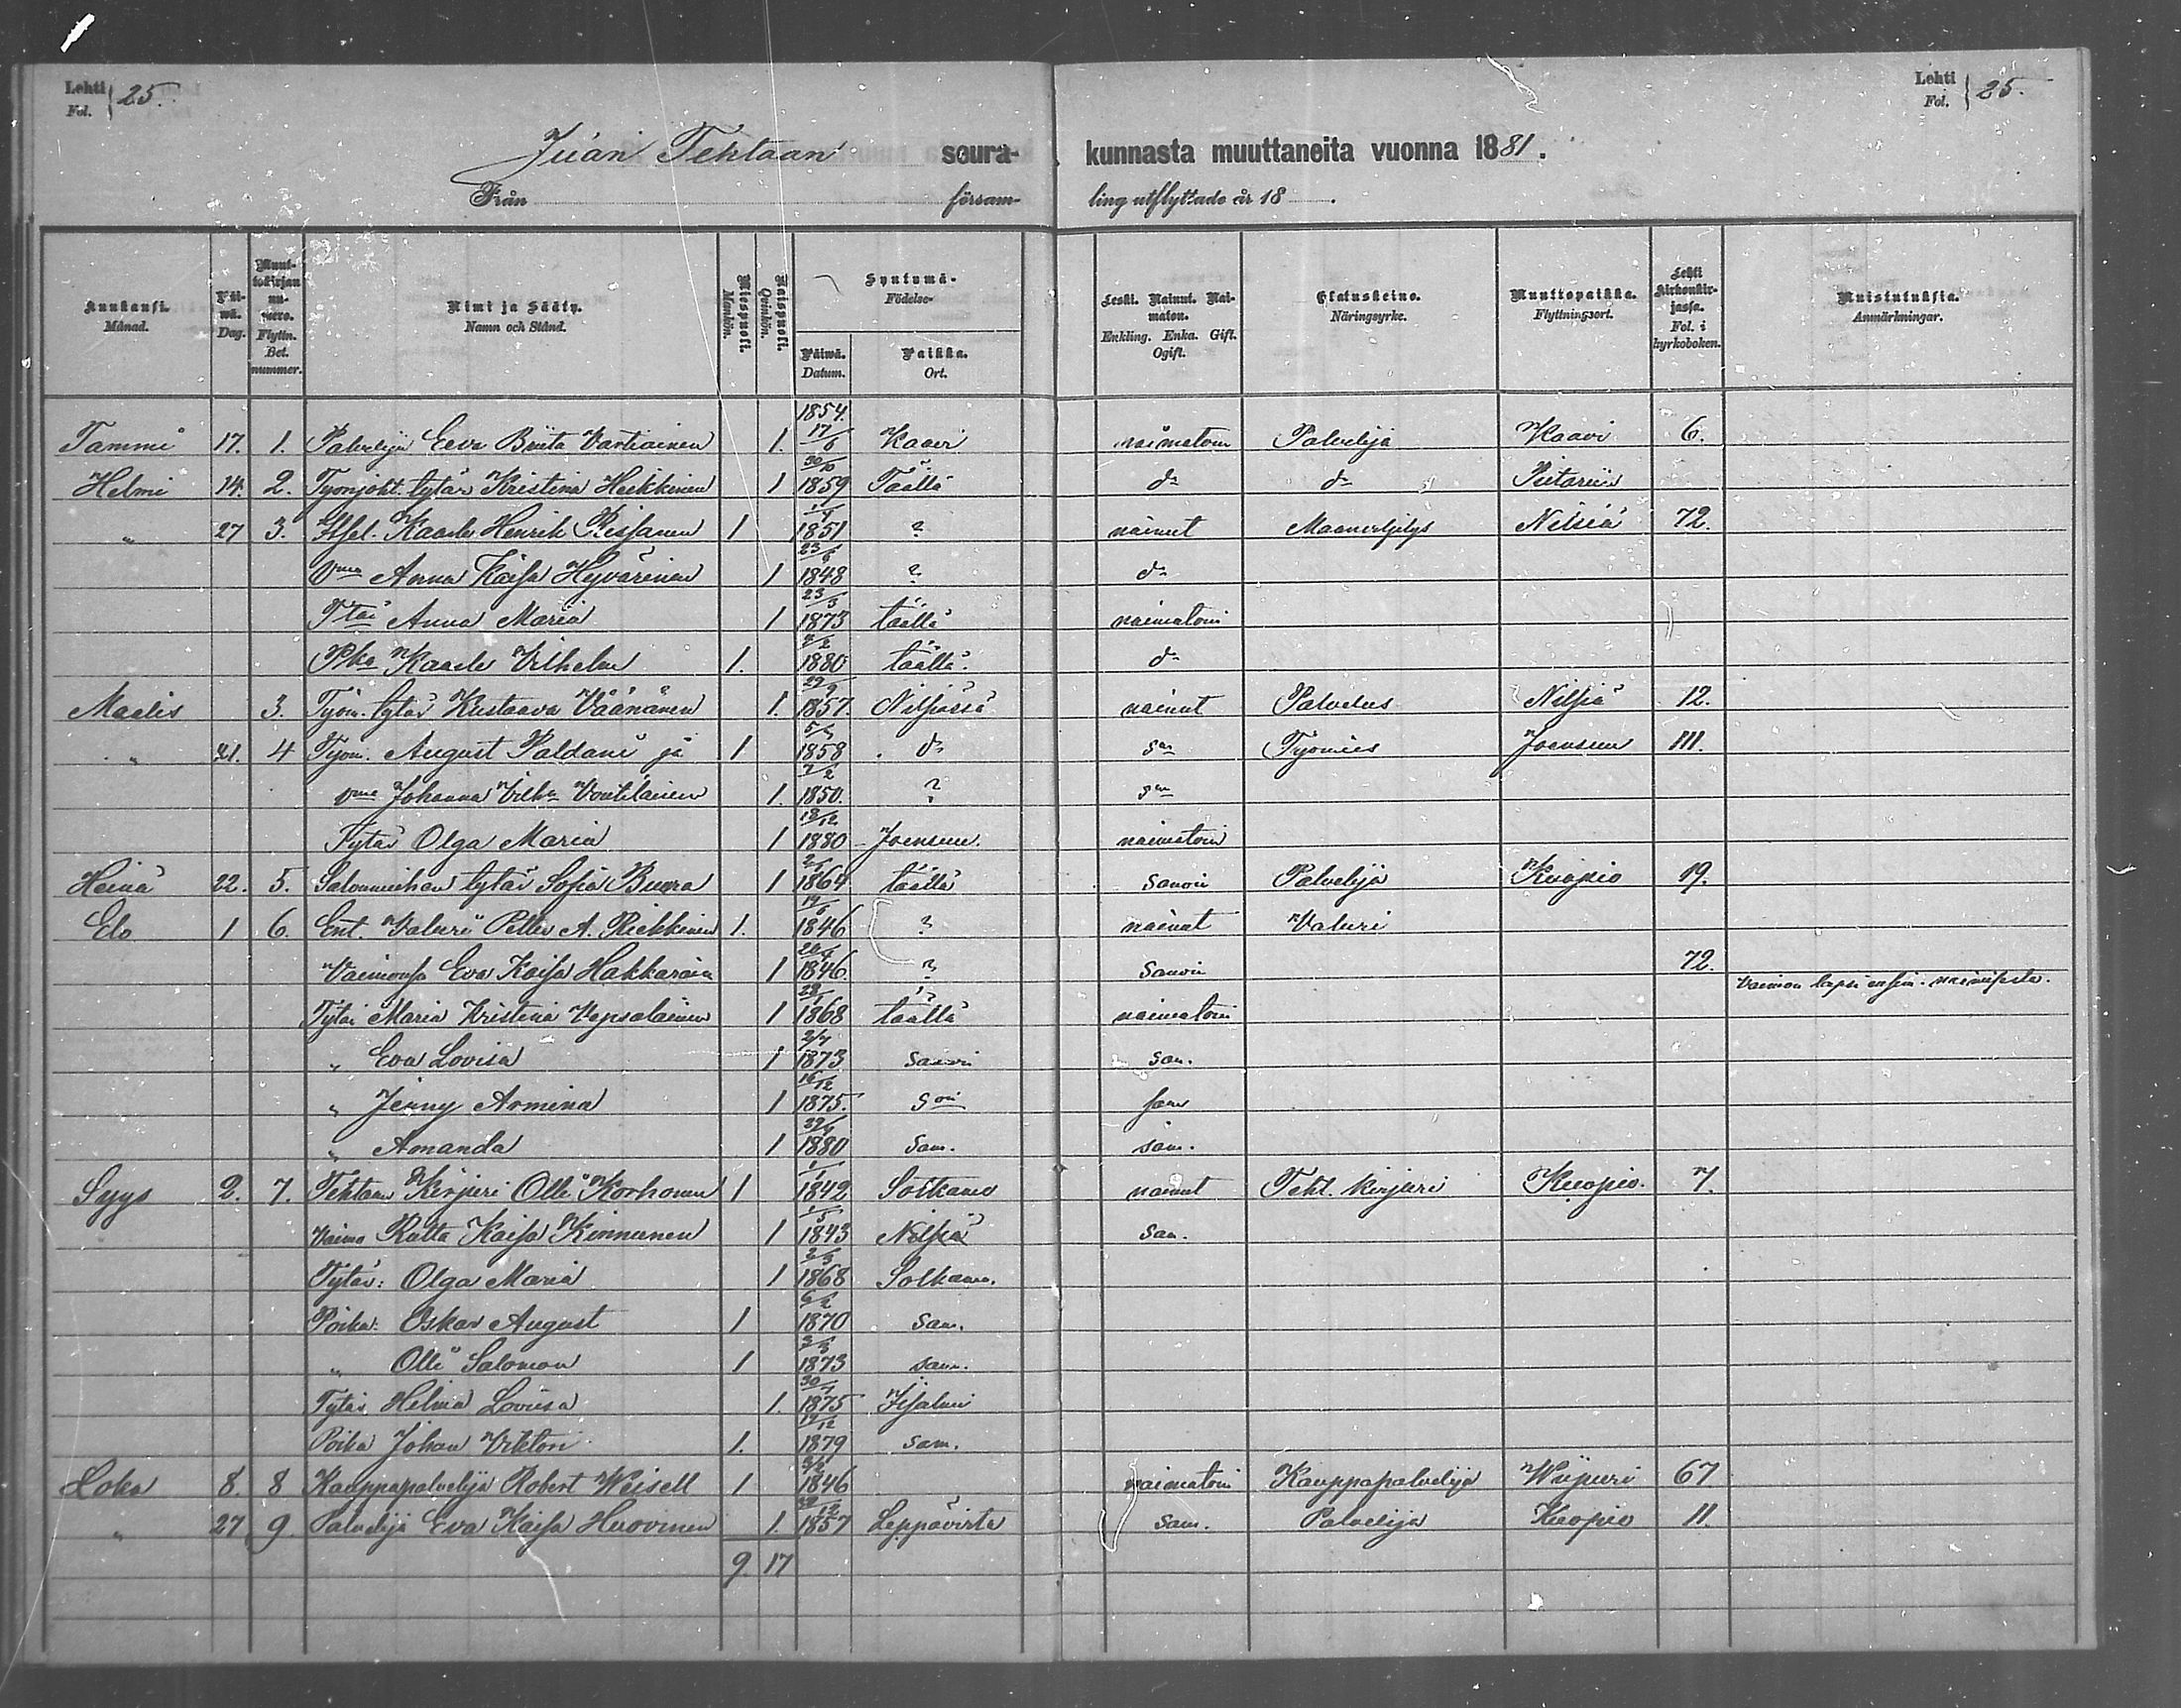 Lehti 25. Lehti 25.
Fol. Fol.
Juan Tehtaan soura- kunnasta muuttaneita vuonna 1881.
Från försam- ling utflyttade år 18 .
Kuukausi. Månad. Päi-wä. Dag. Muut-tokirjan nu-mero. Flyttn. Bet. nummer. Nimi ja Sääty. Namn och Stånd. Miespuoli. Mankön. Naispuoli. Qvinkön. Syntymä- Födelse- Päiwä. Datum. Paikka. Ort. Leski. Nainut. Nai-maton. Enkling. Enka. Gift. Ogift. Elatuskeino. Näringsyrke. Muuttopaikka. Flyttningsort. Lehti kirkonkir-jassa. Fol. i kyrkoboken. Muistutuksia. Anmärkningar.
Tammi 17. 1. Palvelija Eeva Briita Vartiainen 1. 1854 17/6 Kaavi naimatoin Palvelija Kaavi 6.
Helmi 14. 2. Työnjoht. tytär Kristina Heikkinen 1 30/10 1859 Täällä do do Pietariin
" 27 3. Kaarle Henrik Rissanen 1 1851 ? nainut Maanviljelys Nilsiä 72.
Vmo Anna Kaisa Hyvärinen 1 23/6 1848 ? do
Ttär Anna Maria 1 23/3 1873 täällä naimatoin
Pka Kaarle Vilhelm 1. 1880 täällä. do
Maalis 3. Työm. tytär Kustaava Väänänen 1. 29/9 1857. Nilsiässä nainut Palvelus Nilsiä 12.
" 21. 4 Työm. August Paldani ja 1 1858 do sam Työmies Joensuu 111.
vmo Johanna Vilhna Voutilainen 1. 7/2 1850. ? sam
Tytär Olga Maria 1 18/12 1880 Joensuu. naimatoin
Heinä 22. 5. tytär Sofia 1 1864 täällä samoin Palvelija Kuopio 19.
Elo 1 6. Ent. Valuri Petter A. Riekkinen 1. 19/6 1846 ? nainut Valuri
Vaimonsa Eva Kaisa Hakkarain 1 1846. ? samoin 72.
vaimon lapsi
Tytär Maria Kristina Vepsäläinen 1 1868 täällä naimatoin
" Eva Lovisa 1 2/7 1873 samoin sam.
" Jenny Armina 1 16/12 1875. soin sam
" Amanda 1 1880 sam. sam.
Syys 2. 7. Tehtaan Kirjuri Olli Korhonen 1 1/1 1842 Sotkamo nainut Teht. kirjuri Kuopio. 7.
Vaimo Riitta Kaisa Kinnunen 1 1/5 1843 Nilsiä sam.
Tytär: Olga Maria 1 1868 Sotkamo.
Poika: Oskar August 1 6/2 1870 sam.
" Olli Salomon 1 1873 sam.
Tytär Helma Loviisa 1. 1875 Iisalmi
Poika Johan Viktori 1. 19/12 1879 sam.
Loka 8. 8 Kauppapalvelija Robert Weisell 1 1846 naimatoin Kauppapalvelija Wiipuri 67
" 27 9. Palvelija Eva Kaisa Huovinen 1. 1857 Leppävirta sam. Palvelija Kuopio 11.
9. 17